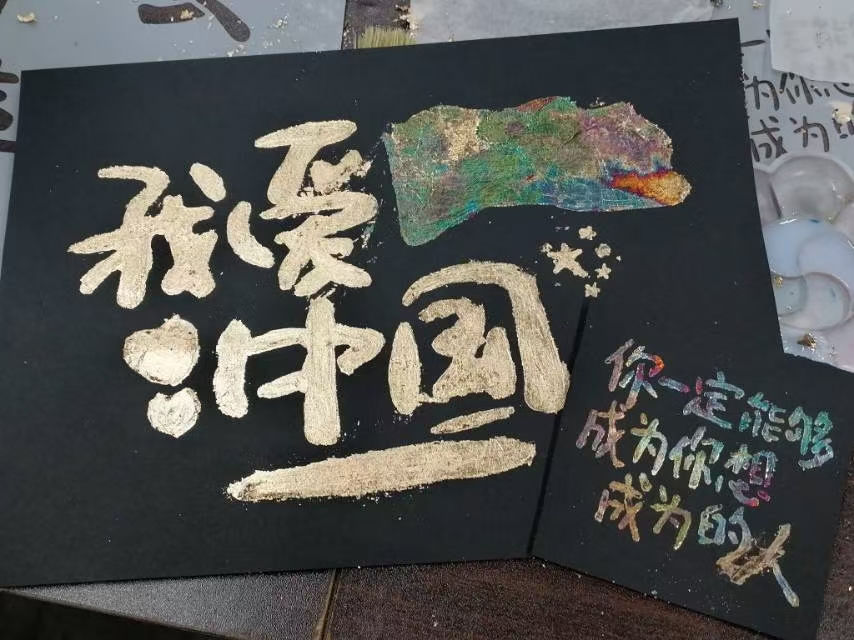 我爱
中国
你一定能够
成为你想
成为的人
为你想
成为